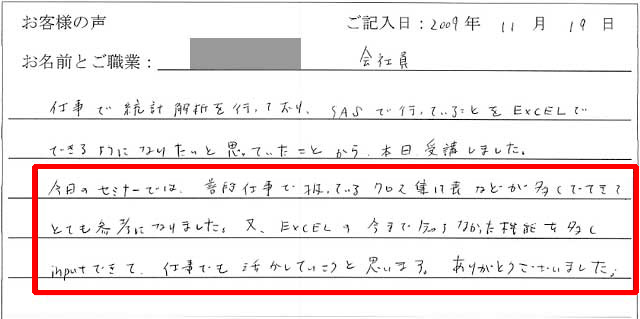 お客様の声 ご記入日：2009年 11月 19日
お名前とご職業： 会社員
仕事で統計解析を行っており、SASで行っていることをEXCELで
できるようになりたいと思っていたことから、本日受講しました。
今日のセミナーでは、普段仕事で扱っているクロス集計表などが多くでてきて
とても参考になりました。又、EXCELの今まで知らなかった機能を多く
inputできて、仕事でも活かしていこうと思います。ありがとうございました。